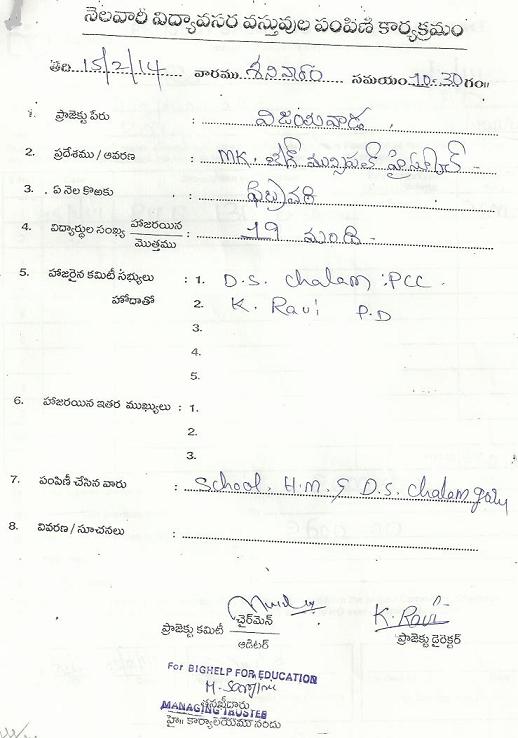 నెలవారీ విద్యావసర వస్తువుల పంపిణి కార్యక్రమం
తేది 15/2/14 వారము శనివారం సమయం 10-30 గం॥
1. ప్రాజెక్టు పేరు : విజయవాడ
2. ప్రదేశము / ఆవరణ : MK. మున్సిపల్ హైస్కూల్ -
3. ఏ నెల కొఱకు : ఫిబ్రవరి
4. విద్యార్ధుల సంఖ్య హాజరయిన / మొత్తము : 19 మంది -
5. హాజరైన కమిటీ సభ్యులు : 1. D.S. Chalam : PCC .
హోదాతో 2. K. Ravi P.D
3.
4.
5.
6. హాజరయిన ఇతర ముఖ్యులు : 1.
2.
3.
7. పంపిణీ చేసిన వారు : School. H.M. & D.S. Chalam garu
8. వివరణ / సూచనలు :
ప్రాజెక్టు కమిటీ చైర్‌మెన్ / ఆడిటర్
K. Ravi
ప్రాజెక్టు డైరెక్టర్
For BIGHELP FOR EDUCATION
MANAGING TRUSTEE
హై॥ కార్యాలయము నందు